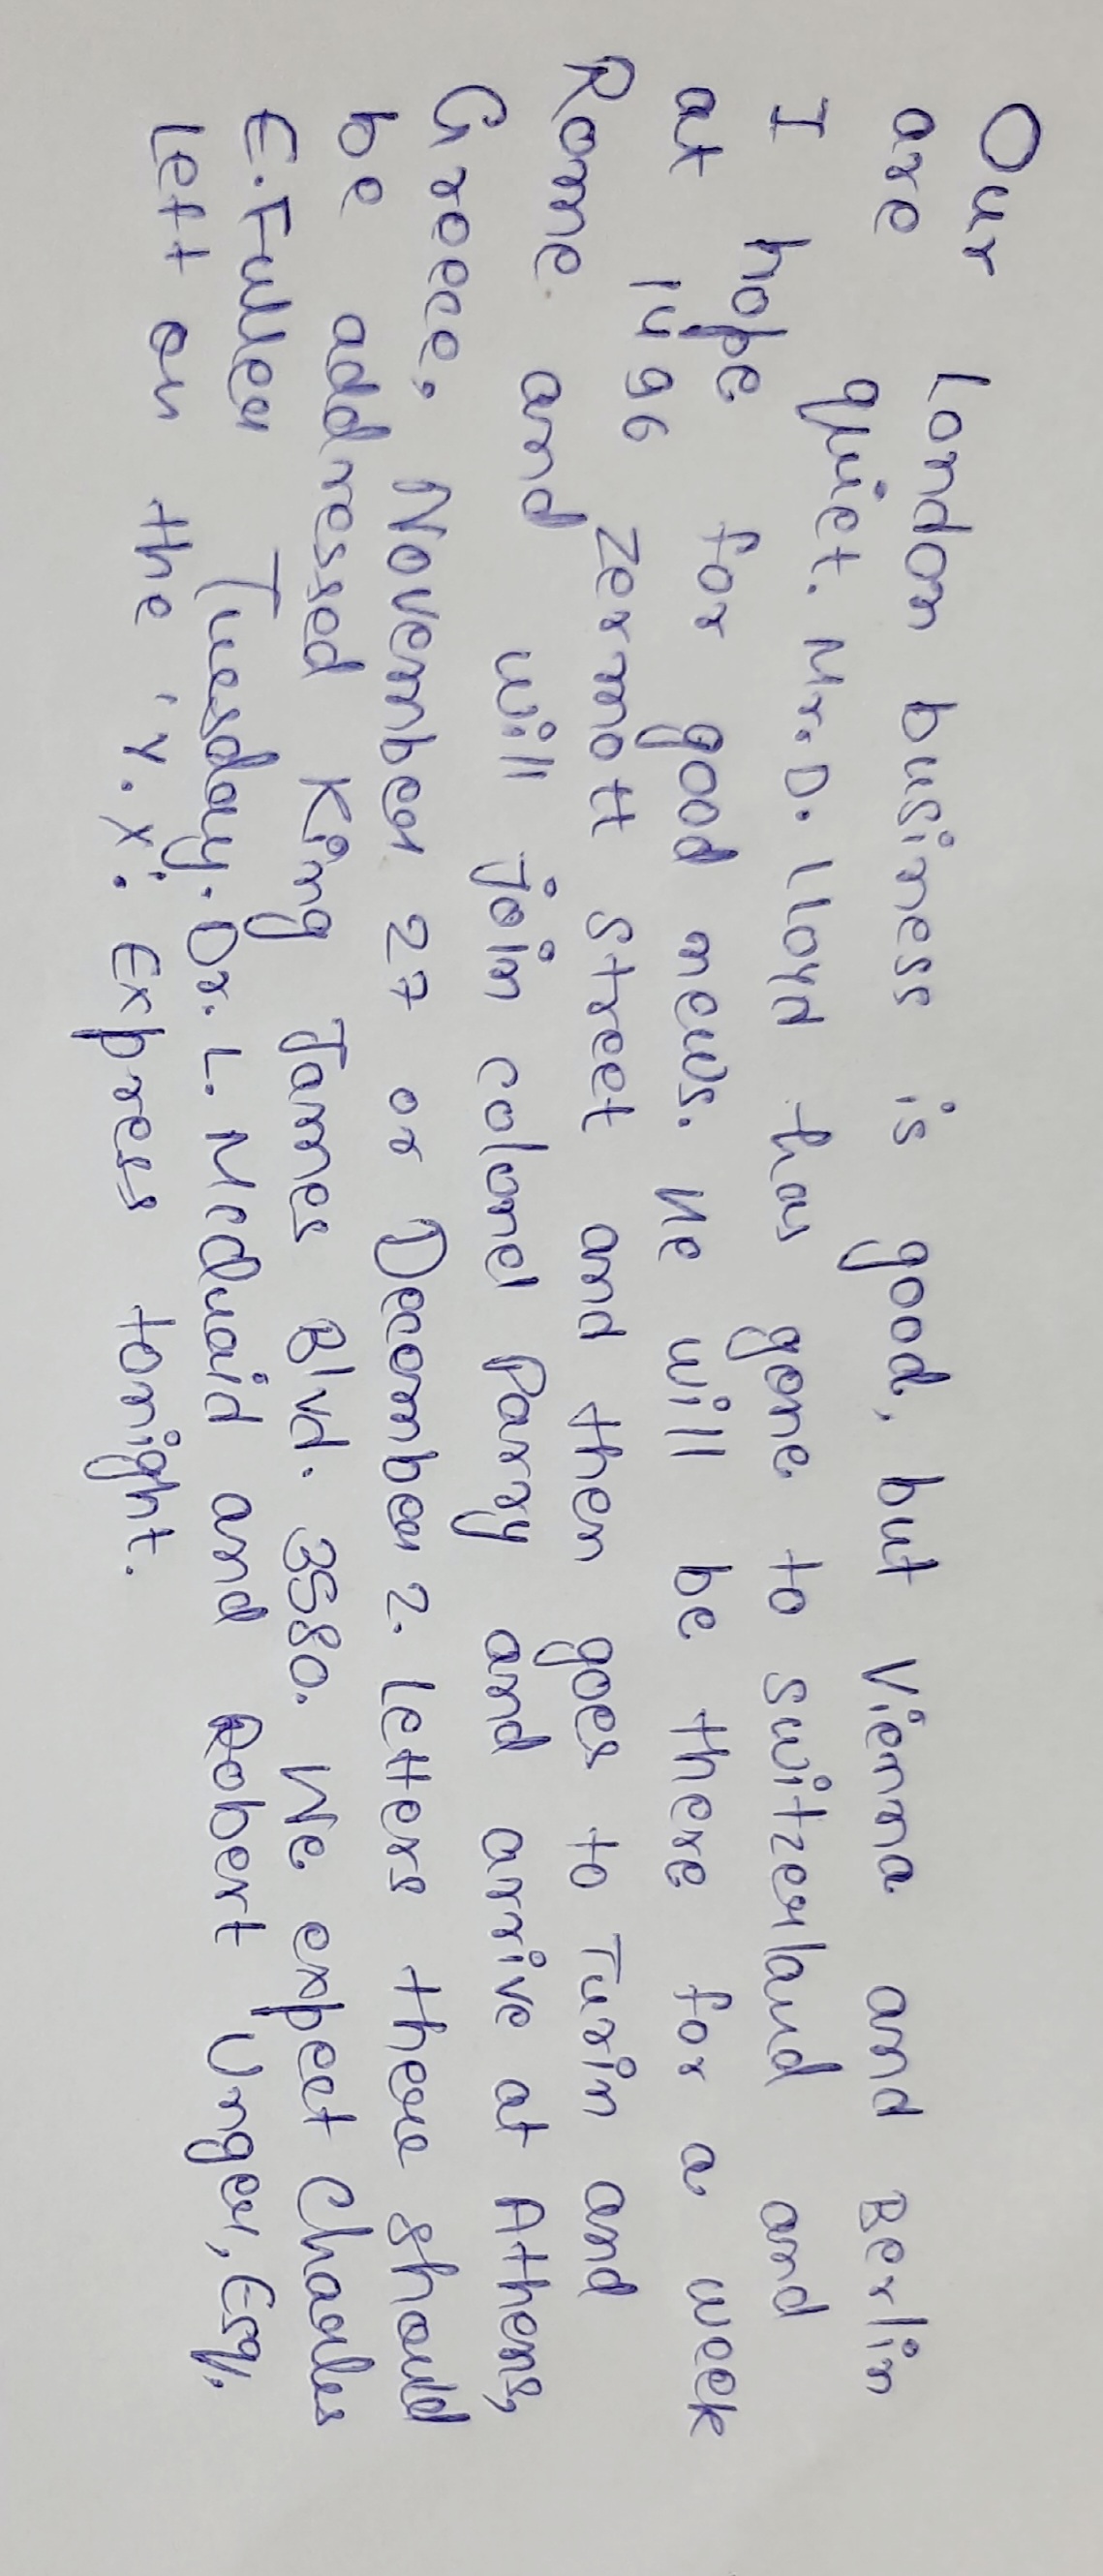 Our London business is good, but Vienna and Berlin
are quiet. Mr. D. Lloyd has gone to switzerland and
I hope for good news. He will be there for a week
at 1496 Zermott street and then goes to Turin and
Rome and will join colonel Parry and arrive at Athens,
Greece, November 27 or December 2. Letters there should
be addressed King James Blvd. 3580. We expect Charles
E. Fuller Tuesday. Dr. L. McQuaid and Robert Unger, Esq,
Left on the 'Y.X'. Express tonight.